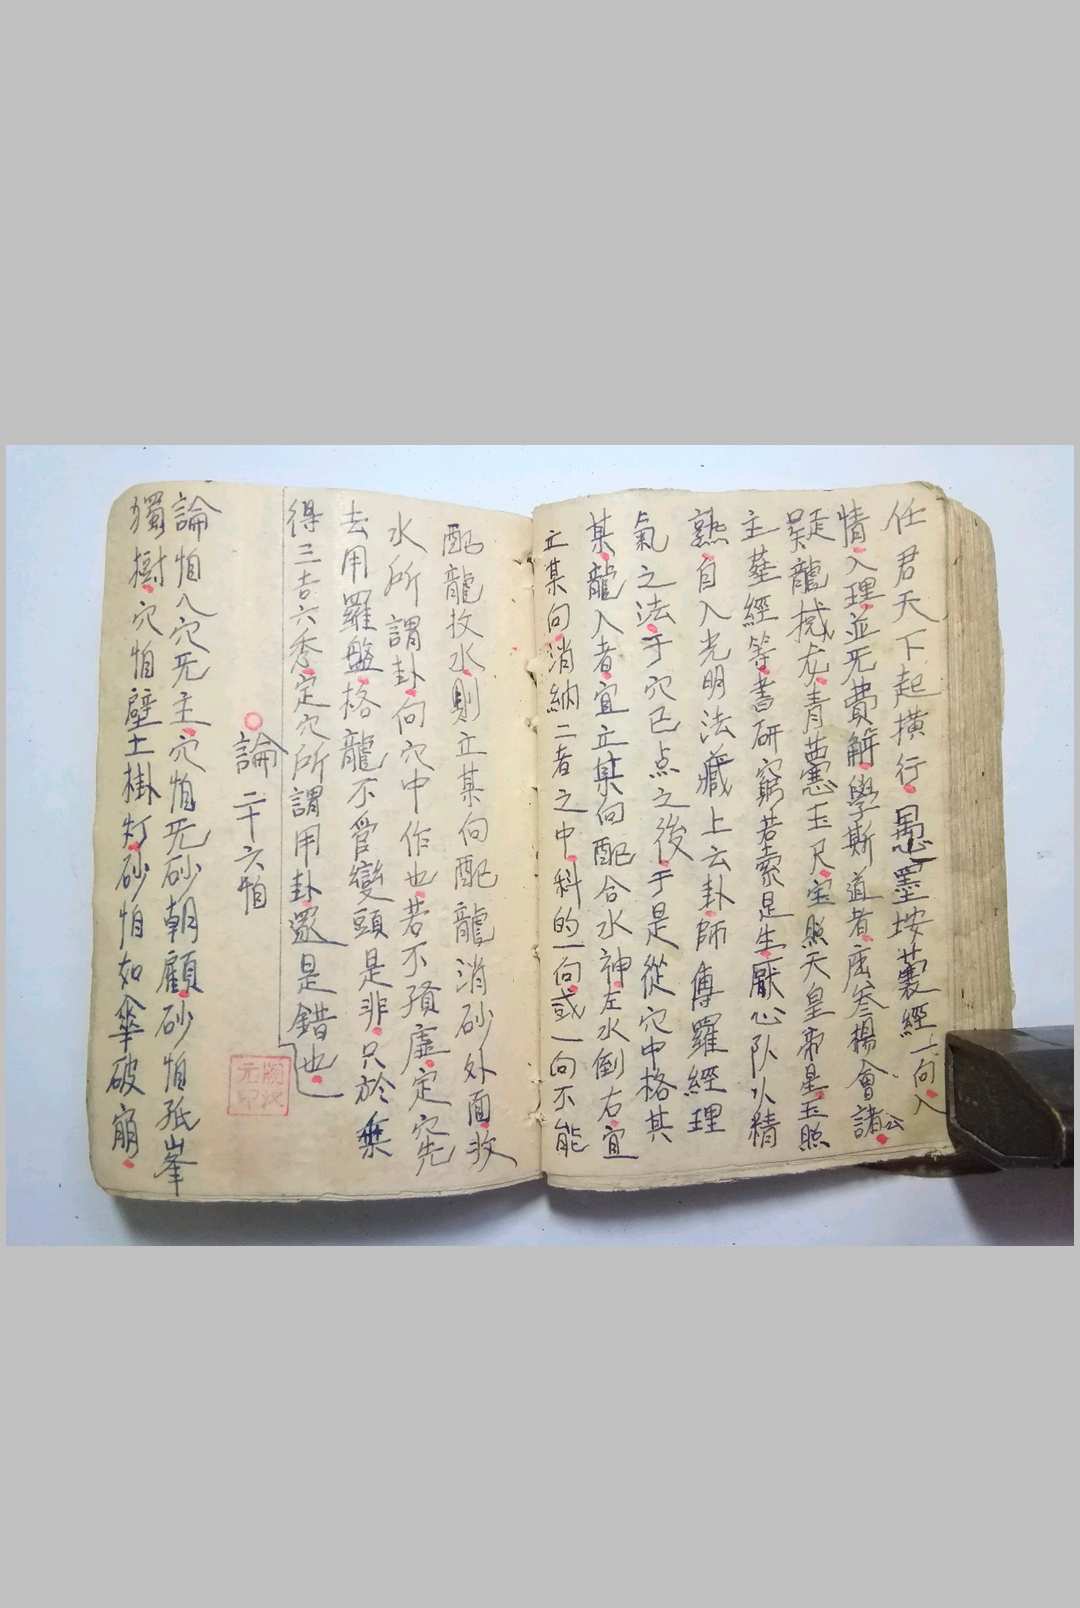 任君天下起橫行愚墨按囊經一向入
情入理並旡費解學斯道者虛叅楊會諸公
疑龍撼龙青囊玉尺宝照天皇帝星玉照
主塟經等書研窮若索是生厭心队以精
熟自入光明法藏上云卦師傳羅經理
氣之法于穴已点之後于是從穴中格其
某龍入者宜立某向配合水神左水倒右宜
立某向消納二者之中科的一向或一向不能
配龍收水則立某向配龍消砂外面收
水所謂卦向穴中作也若不預虛定穴先
去用羅盤格龍不管變頭是非只於乗
得三吉六秀定穴所謂用卦還是錯也
論二十六怕
論怕入穴旡主穴怕旡砂朝顧砂怕孤峯
獨樹穴怕壁土掛灯砂怕如傘破崩